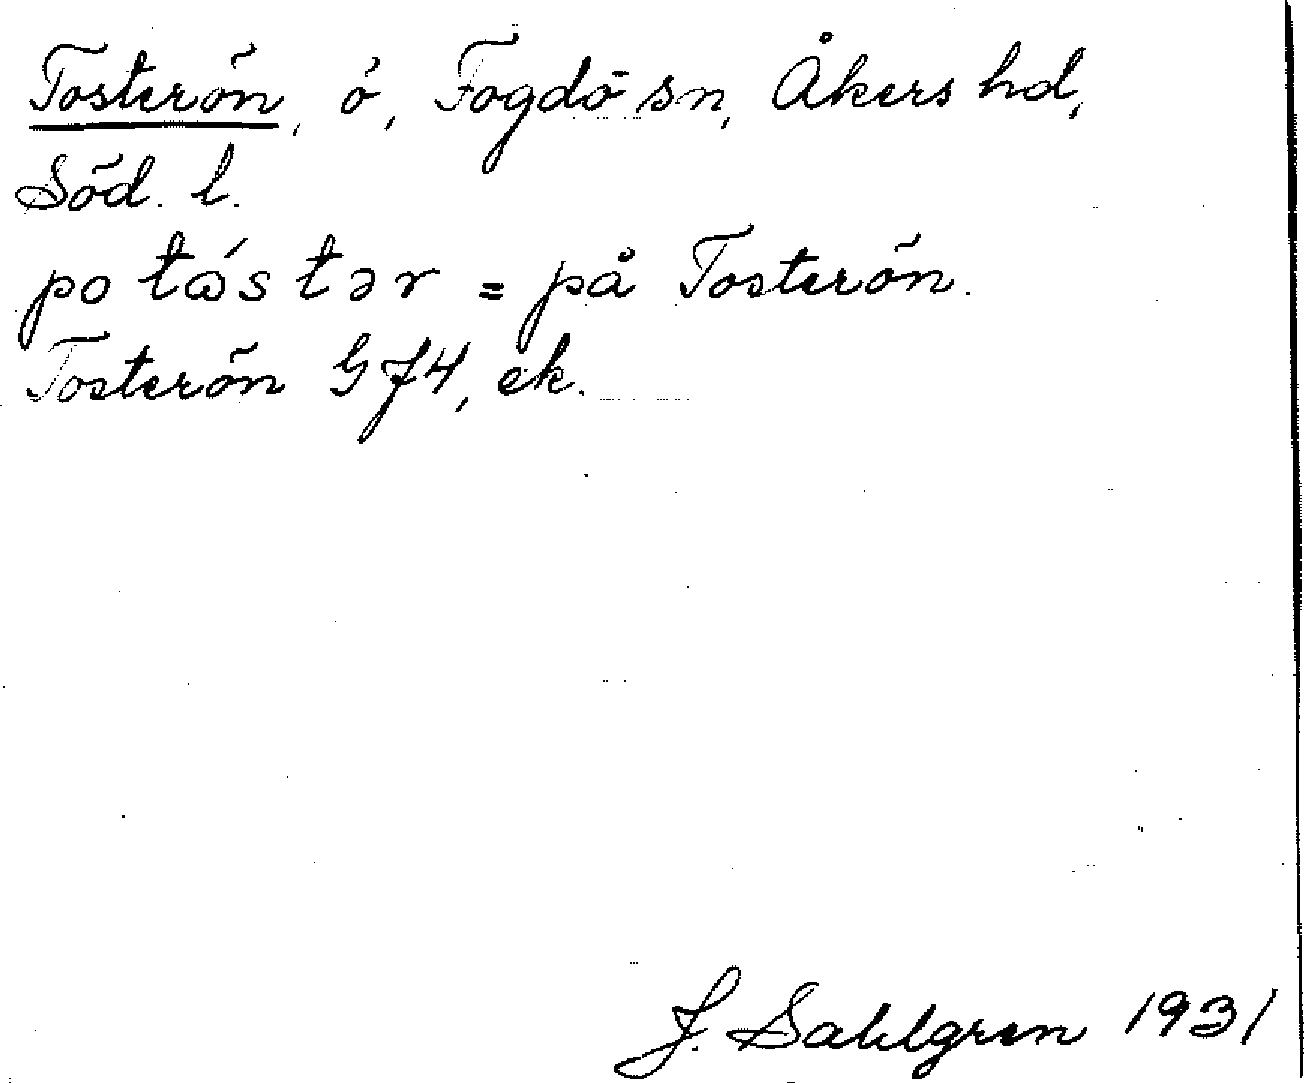 Tosterön, ö, Fogdö sn, Åkers hd,
Söd. l.
po tɷ́stər = på Tosterön.
Tosterön GJ4, ek.
J. Sahlgren 1931